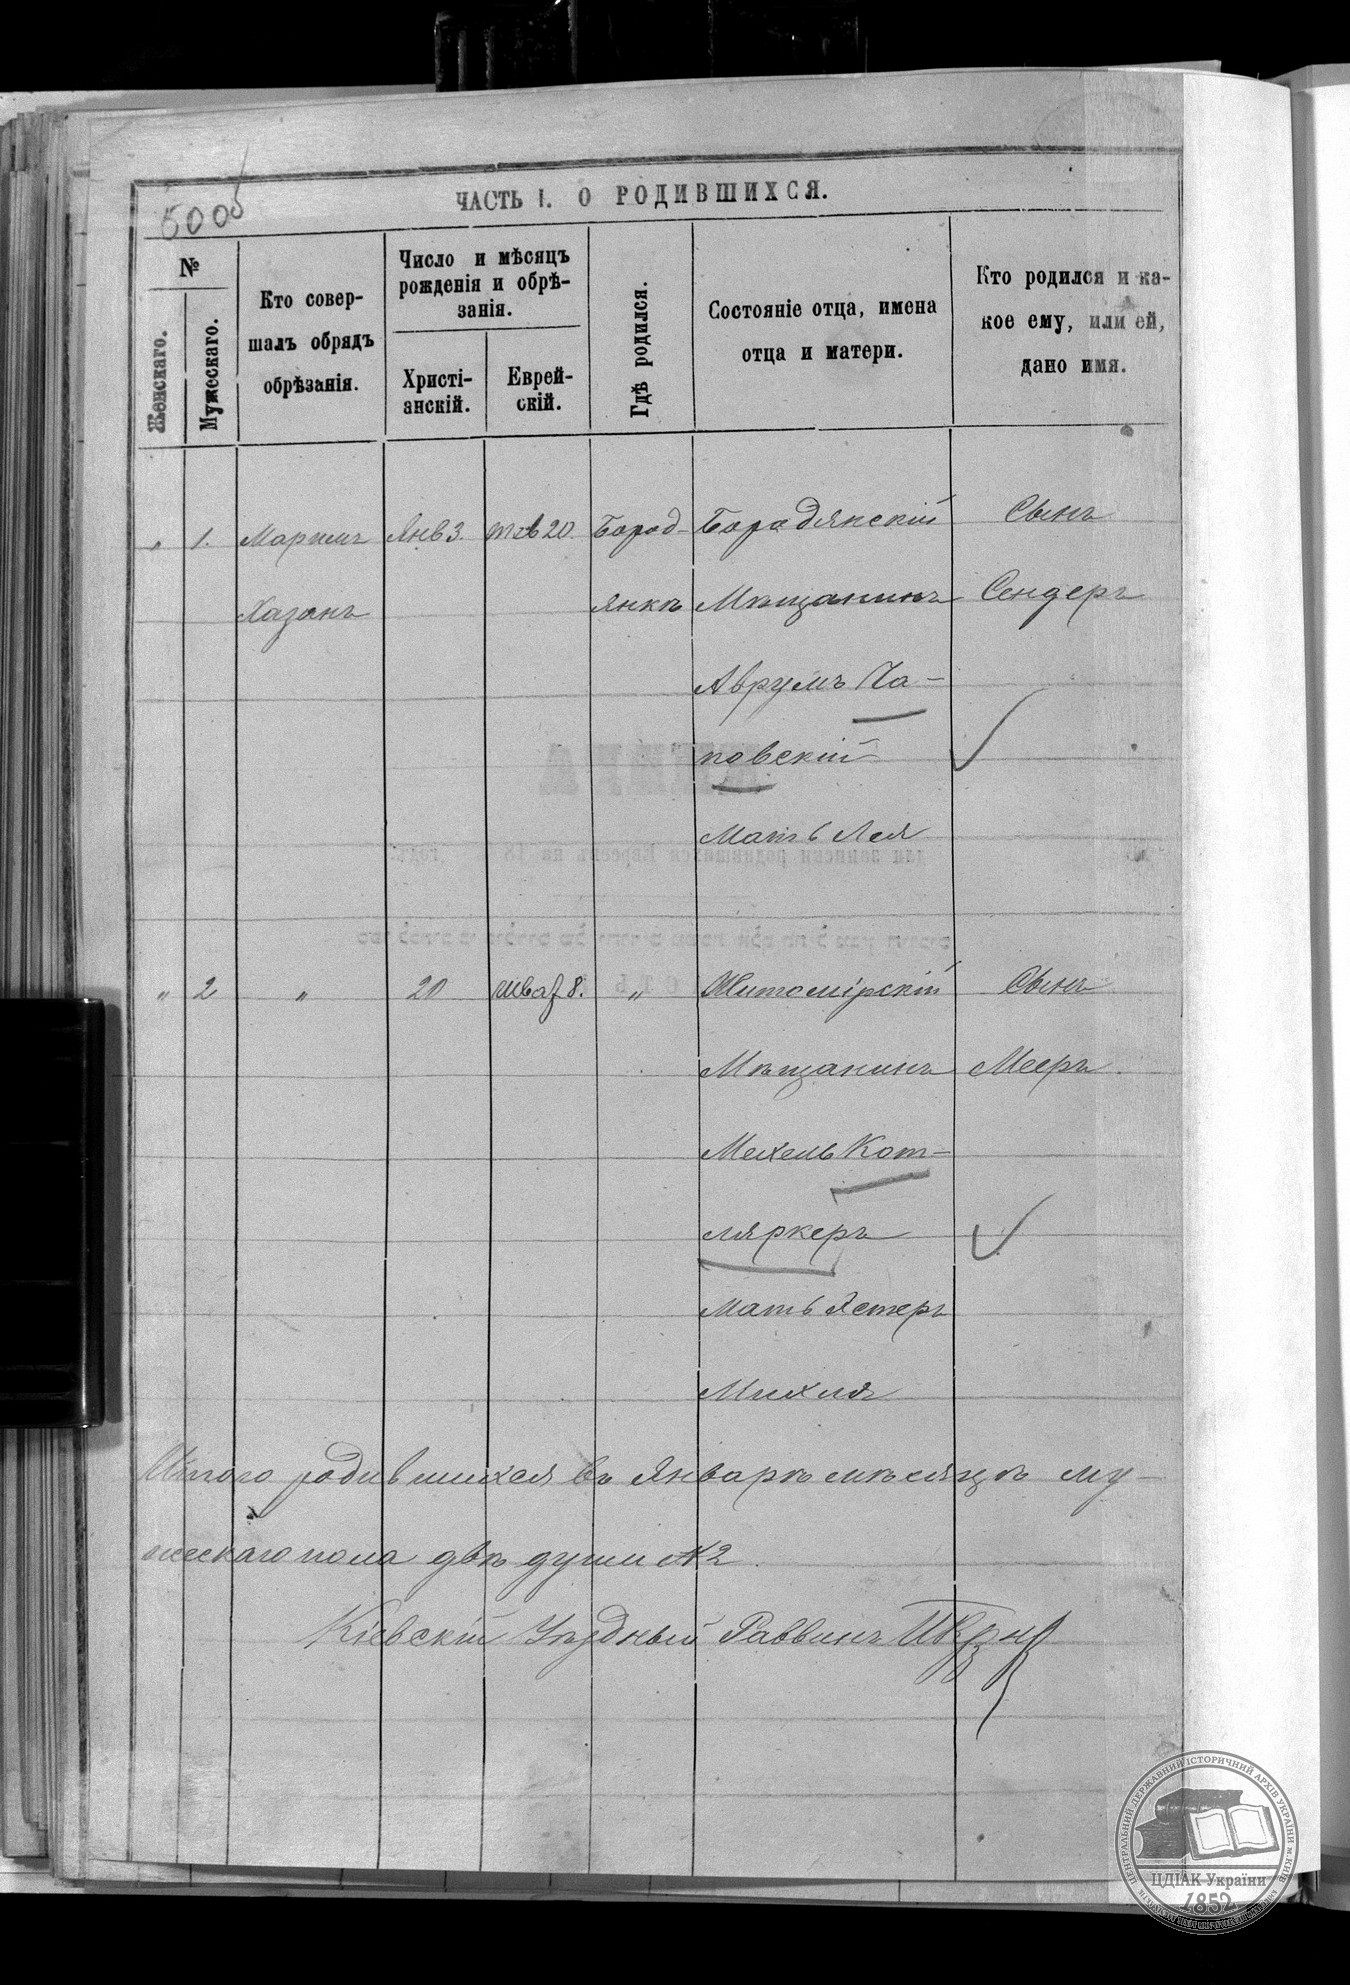 500б
ЧАСТЬ I. О РОДИВШИХСЯ.
№
Женскаго.
Мужескаго.
Кто совер-
шалъ обрядъ
обрѣзанія.
Число и мѣсяцъ
рожденія и обрѣ-
занія.
Христі-
анскій.
Еврей-
скій.
Гдѣ родился.
Состояніе отца, имена
отца и матери.
Кто родился и ка-
кое ему, или ей,
дано имя.
„ 1. Маримъ Янв 3. тев 20. Бород- Бородянскій Сынъ
Хазанъ янкѣ Мѣщанинъ Сендеръ
Аврумъ Ча-
повскій
Мать Лея
„ 2 „ 20 шваf 8. „ Житомірскій Сынъ
Мѣщанинъ Мееръ
Мехель Кот-
ляркеръ
Мать Эстеръ
Михля
Итого родившихся въ Январѣ мѣсяцѣ му-
жескаго пола двѣ души № 2.
Кіевскій Уѣздный Раввинъ
ЦЕНТРАЛЬНИЙ ДЕРЖАВНИЙ ІСТОРИЧНИЙ АРХІВ УКРАЇНИ м.КИЇВ
ЦДІАК України
1852